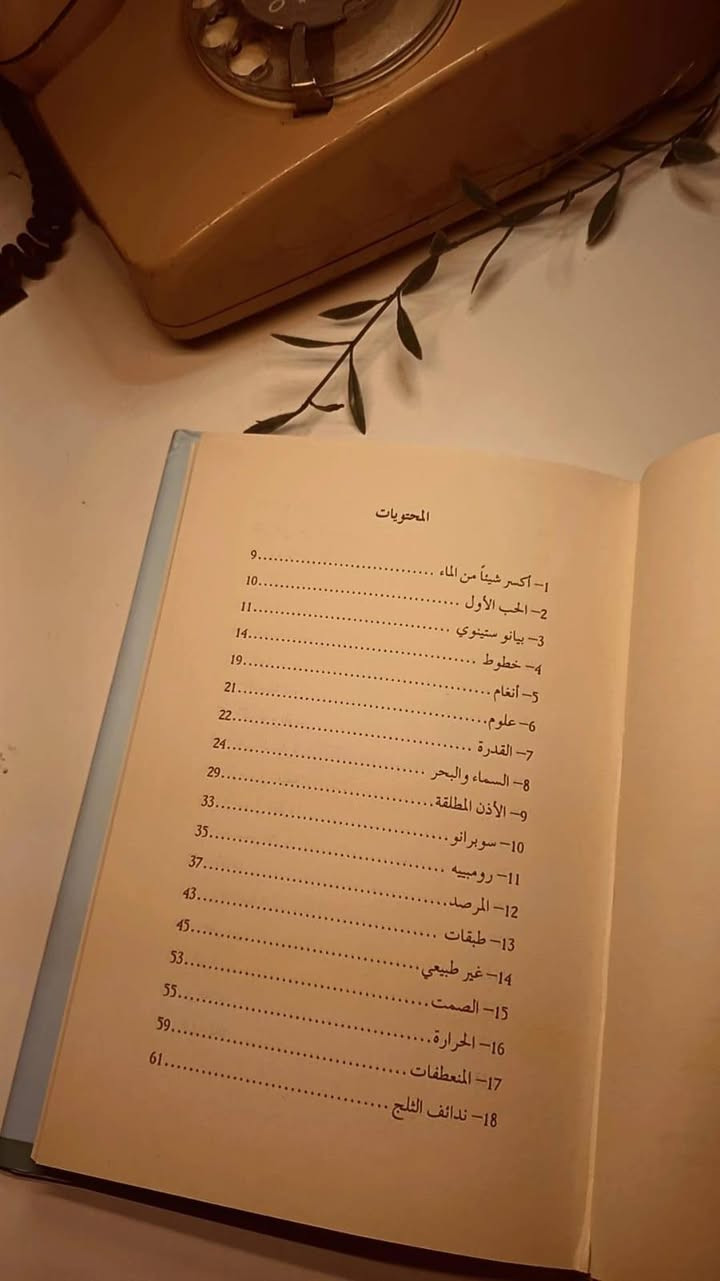 المحتويات
1– أكسر شيئاً من الماء ..............................9
2– الحب الأول ..............................10
3– بيانو ستينوي ..............................11
4– خطوط ..............................14
5– أنغام..............................19
6– علوم..............................21
7– القدرة ..............................22
8– السماء والبحر ..............................24
9– الأذن المطلقة..............................29
10– سوبرانو..............................33
11– رومبييه ..............................35
12– المرصد..............................37
13– طبقات ..............................43
14– غير طبيعي..............................45
15– الصمت..............................53
16– الحرارة..............................55
17– المنعطفات..............................59
18– ندائف الثلج ..............................61